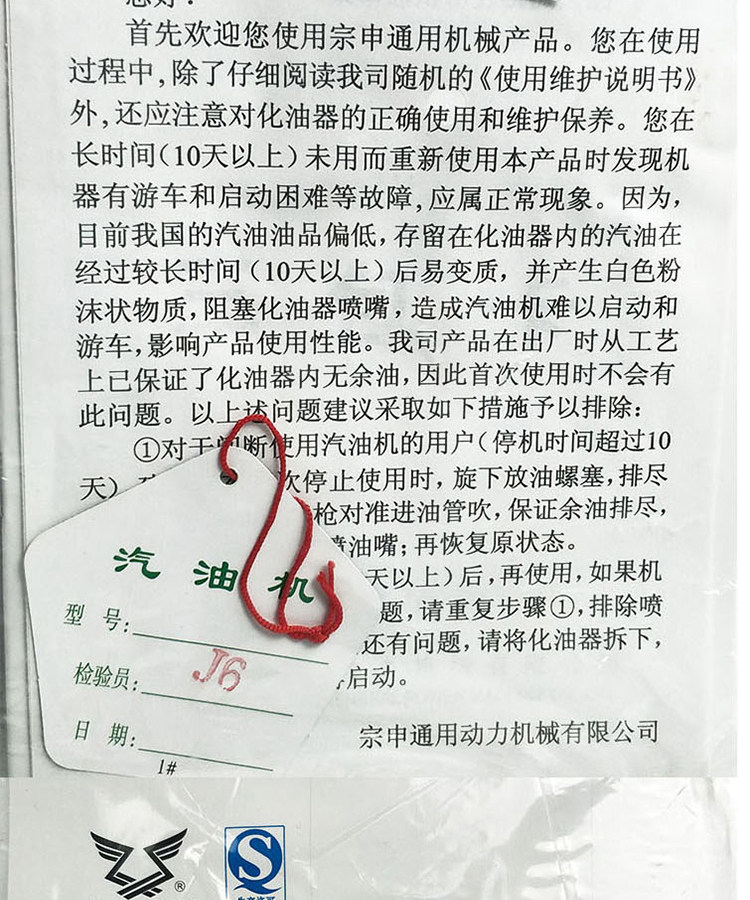 您好：
首先欢迎您使用宗申通用机械产品。您在使用
过程中，除了仔细阅读我司随机的《使用维护说明书》
外，还应注意对化油器的正确使用和维护保养。您在
长时间（10天以上）未用而重新使用本产品时发现机
器有游车和启动困难等故障，应属正常现象。因为，
目前我国的汽油油品偏低，存留在化油器内的汽油在
经过较长时间（10天以上）后易变质，并产生白色粉
沫状物质，阻塞化油器喷嘴，造成汽油机难以启动和
游车，影响产品使用性能。我司产品在出厂时从工艺
上已保证了化油器内无余油，因此首次使用时不会有
此问题。以上述问题建议采取如下措施予以排除：
①对于间断使用汽油机的用户（停机时间超过10
天）次停止使用时，旋下放油螺塞，排尽
枪对准进油管吹，保证余油排尽，
油嘴；再恢复原状态。
天以上）后，再使用，如果机
题，请重复步骤①，排除喷
还有问题，请将化油器拆下，
启动。
宗申通用动力机械有限公司
汽油机
型号：
检验员：J6
日期：
1#
®
S